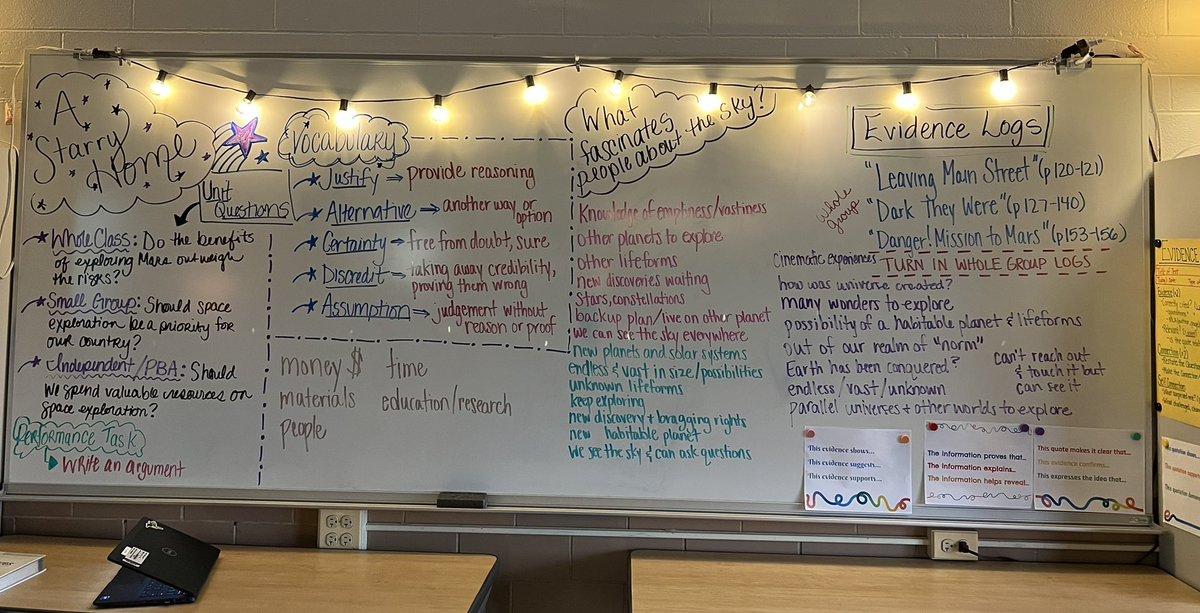 A
Starry
Home
Unit
Questions
Whole Class: Do the benefits
of exploring Mars outweigh
the risks?
Small Group: Should space
exploration be a priority for
our country?
Independent/PBA: Should
we spend valuable resources on
space exploration?
Performance Task
Write an argument
Vocabulary
Justify → provide reasoning
Alternative → another way or
option
Certainty → free from doubt, sure
Discredit → taking away credibility,
proving them wrong
Assumption → judgement without
reason or proof
money $ time
materials education/research
people
What
fascinates
people about the sky?
Knowledge of emptiness/vastiness
other planets to explore
other lifeforms
new discoveries waiting
Stars, constellations
backup plan/live on other planet
we can see the sky everywhere
new planets and solar systems
endless & vast in size/possibilities
unknown lifeforms
keep exploring
new discovery + bragging rights
new habitable planet
We see the sky & can ask questions
Evidence Logs
whole
group
"Leaving Main Street" (p120-121)
"Dark They Were" (p127-140)
"Danger! Mission to Mars" (p153-156)
Cinematic Experiences
TURN IN WHOLE GROUP LOGS
how was universe created?
many wonders to explore
possibility of a habitable planet & lifeforms
out of our realm of "norm"
Earth has been conquered?
endless/vast/unknown
parallel universes + other worlds to explore
can't reach out
& touch it but
can see it
This evidence shows...
This evidence suggests...
This evidence supports...
The information proves that...
The information explains...
The information helps reveal...
This quote makes it clear that...
This evidence confirms...
This expresses the idea that...
EVIDENCE